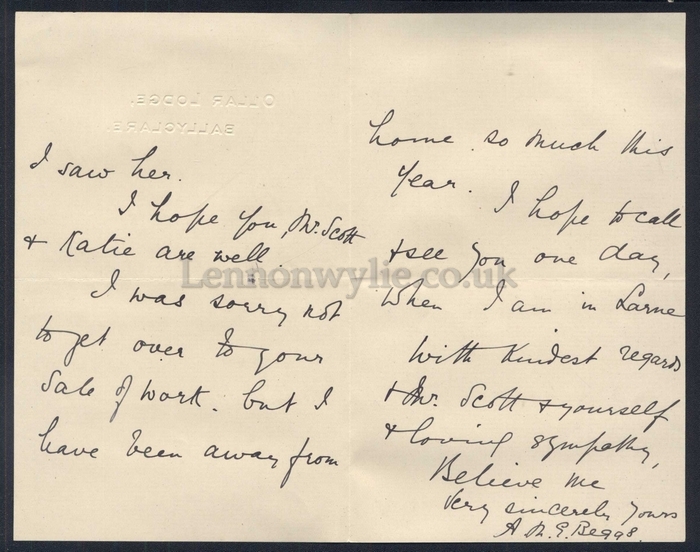 OLLAR LODGE.
BALLYCLARE.
I saw her.
I hope you, Mr. Scott
& Katie are well
I was sorry not
to get over to your
Sale of work. but I
have been away from
home so much this
year. I hope to call
& see you one day,
when I am in Larne
With kindest regards
to Mr. Scott & yourself
& loving sympathy,
Believe me
Very sincerely yours
A M. E. Beggs.
Lennonwylie.co.uk